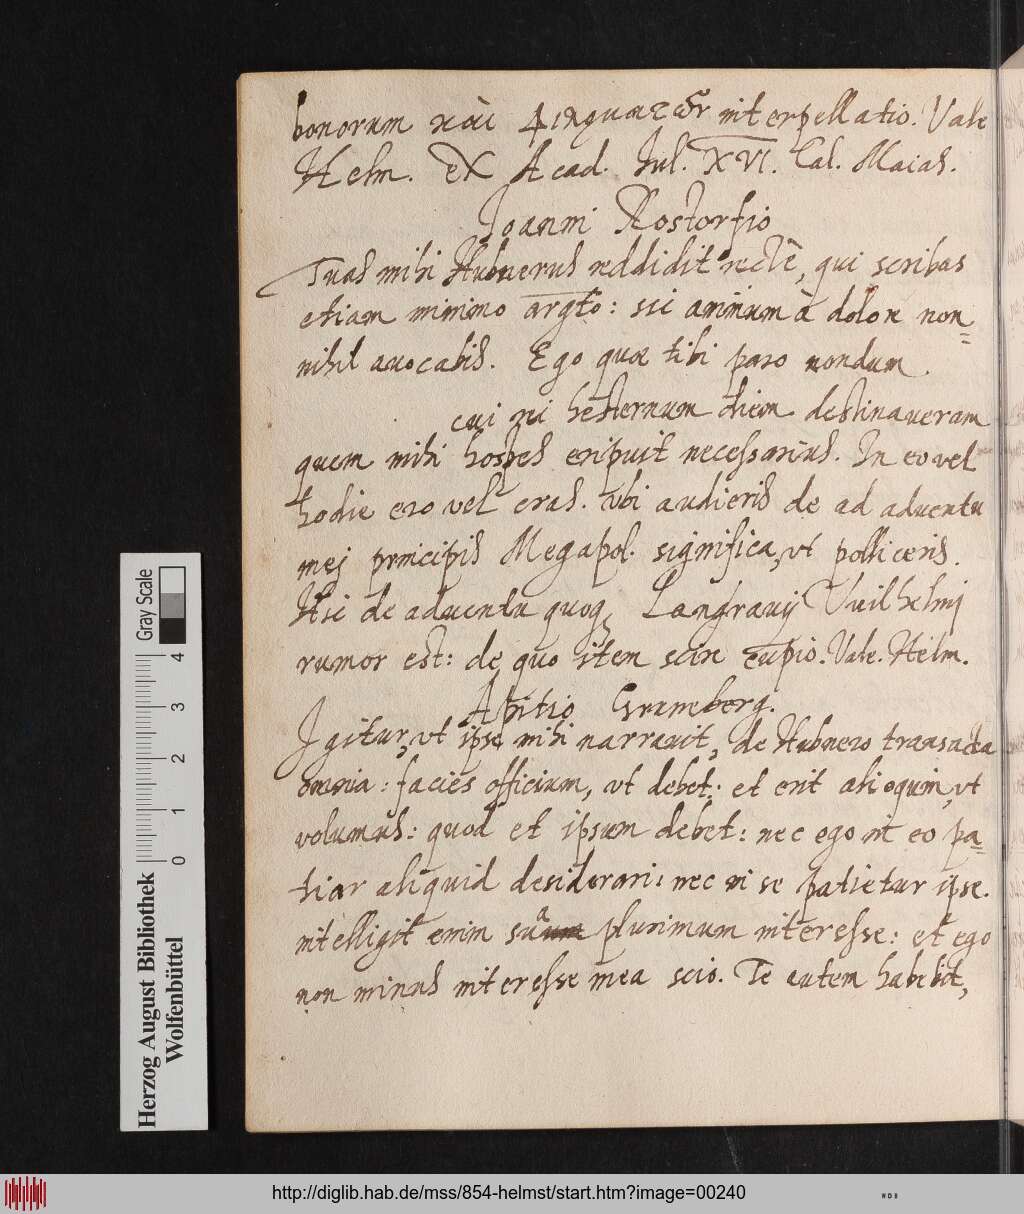 bonorum καὶ interpellatio. Vale
Helm. ex Acad. Jul. XVI. Cal. Maias.
Joanni Rostorfio
Tuas mihi Hubnerus reddidit recte, qui scribas
etiam minimo argto: sic animum à dolore non=
nihil avocabis. Ego quæ tibi paro nondum
cui rei hesternum diem destinaveram
quem mihi hospes eripuit necessarius. In eo vel
hodie ero vel cras. Ubi audieris de ad adventu
mej principis Megapol. significa, vt polliceris.
Hic de adventu quoq Langravij Vuilhelmj
rumor est: de quo item scire cupio. Vale. Helm.
Apitio Grameberg.
Igitur, vt ipse mihi narravit, de Hubnero transacta
omnia: facies officium, vt debet: et erit alioquin, vt
volumus: quod et ipsum debet: nec ego in eo pa=
tiar aliquid desiderari: nec in se patietur ipse.
intelligit enim sua plurimum interesse: et ego
non minus interesse mea scio. Te autem habebit,
Gray Scale
4 3 2 1 0
Herzog August Bibliothek
Wolfenbüttel
http://diglib.hab.de/mss/854-helmst/start.htm?image=00240